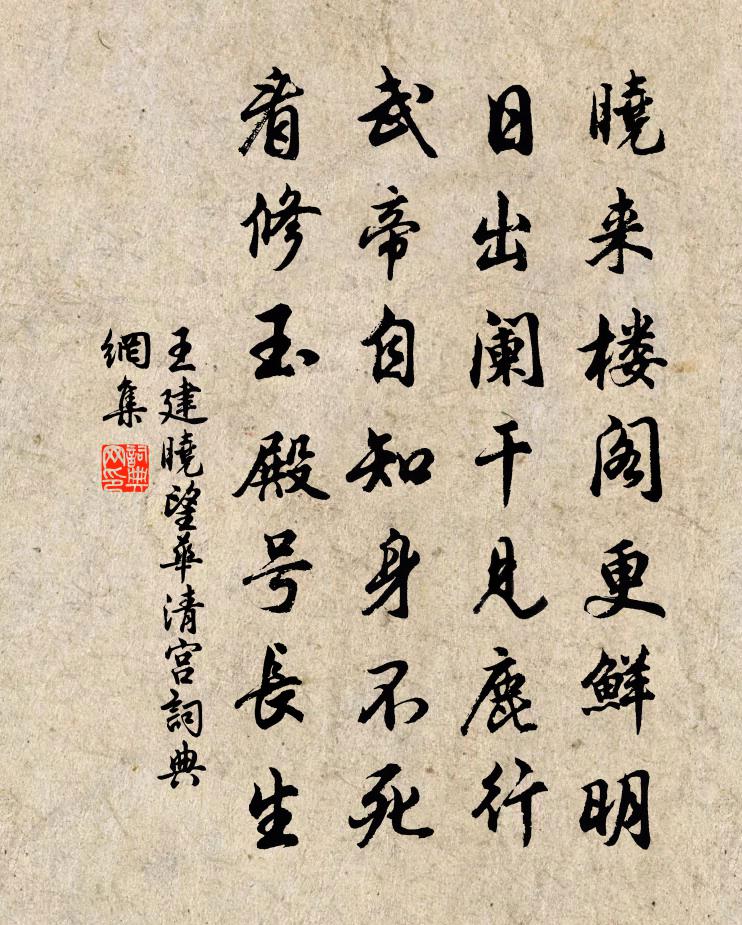 曉来楼阁更鮮明
日出阑干見鹿行
武帝自知身不死
看修玉殿号長生
王建曉望華清宫詞典
網集
詞典
网印